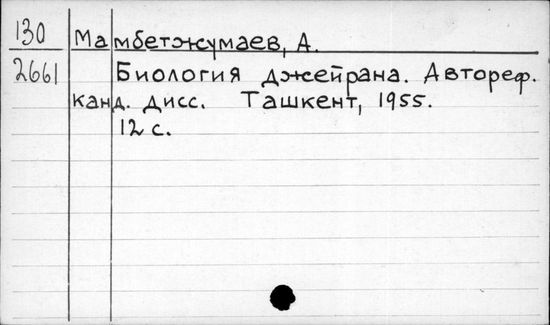 130 Мамбетжумаев, А.
2661 Биология джейрана. Автореф.
канд. дисс. Ташкент, 1955.
12 с.